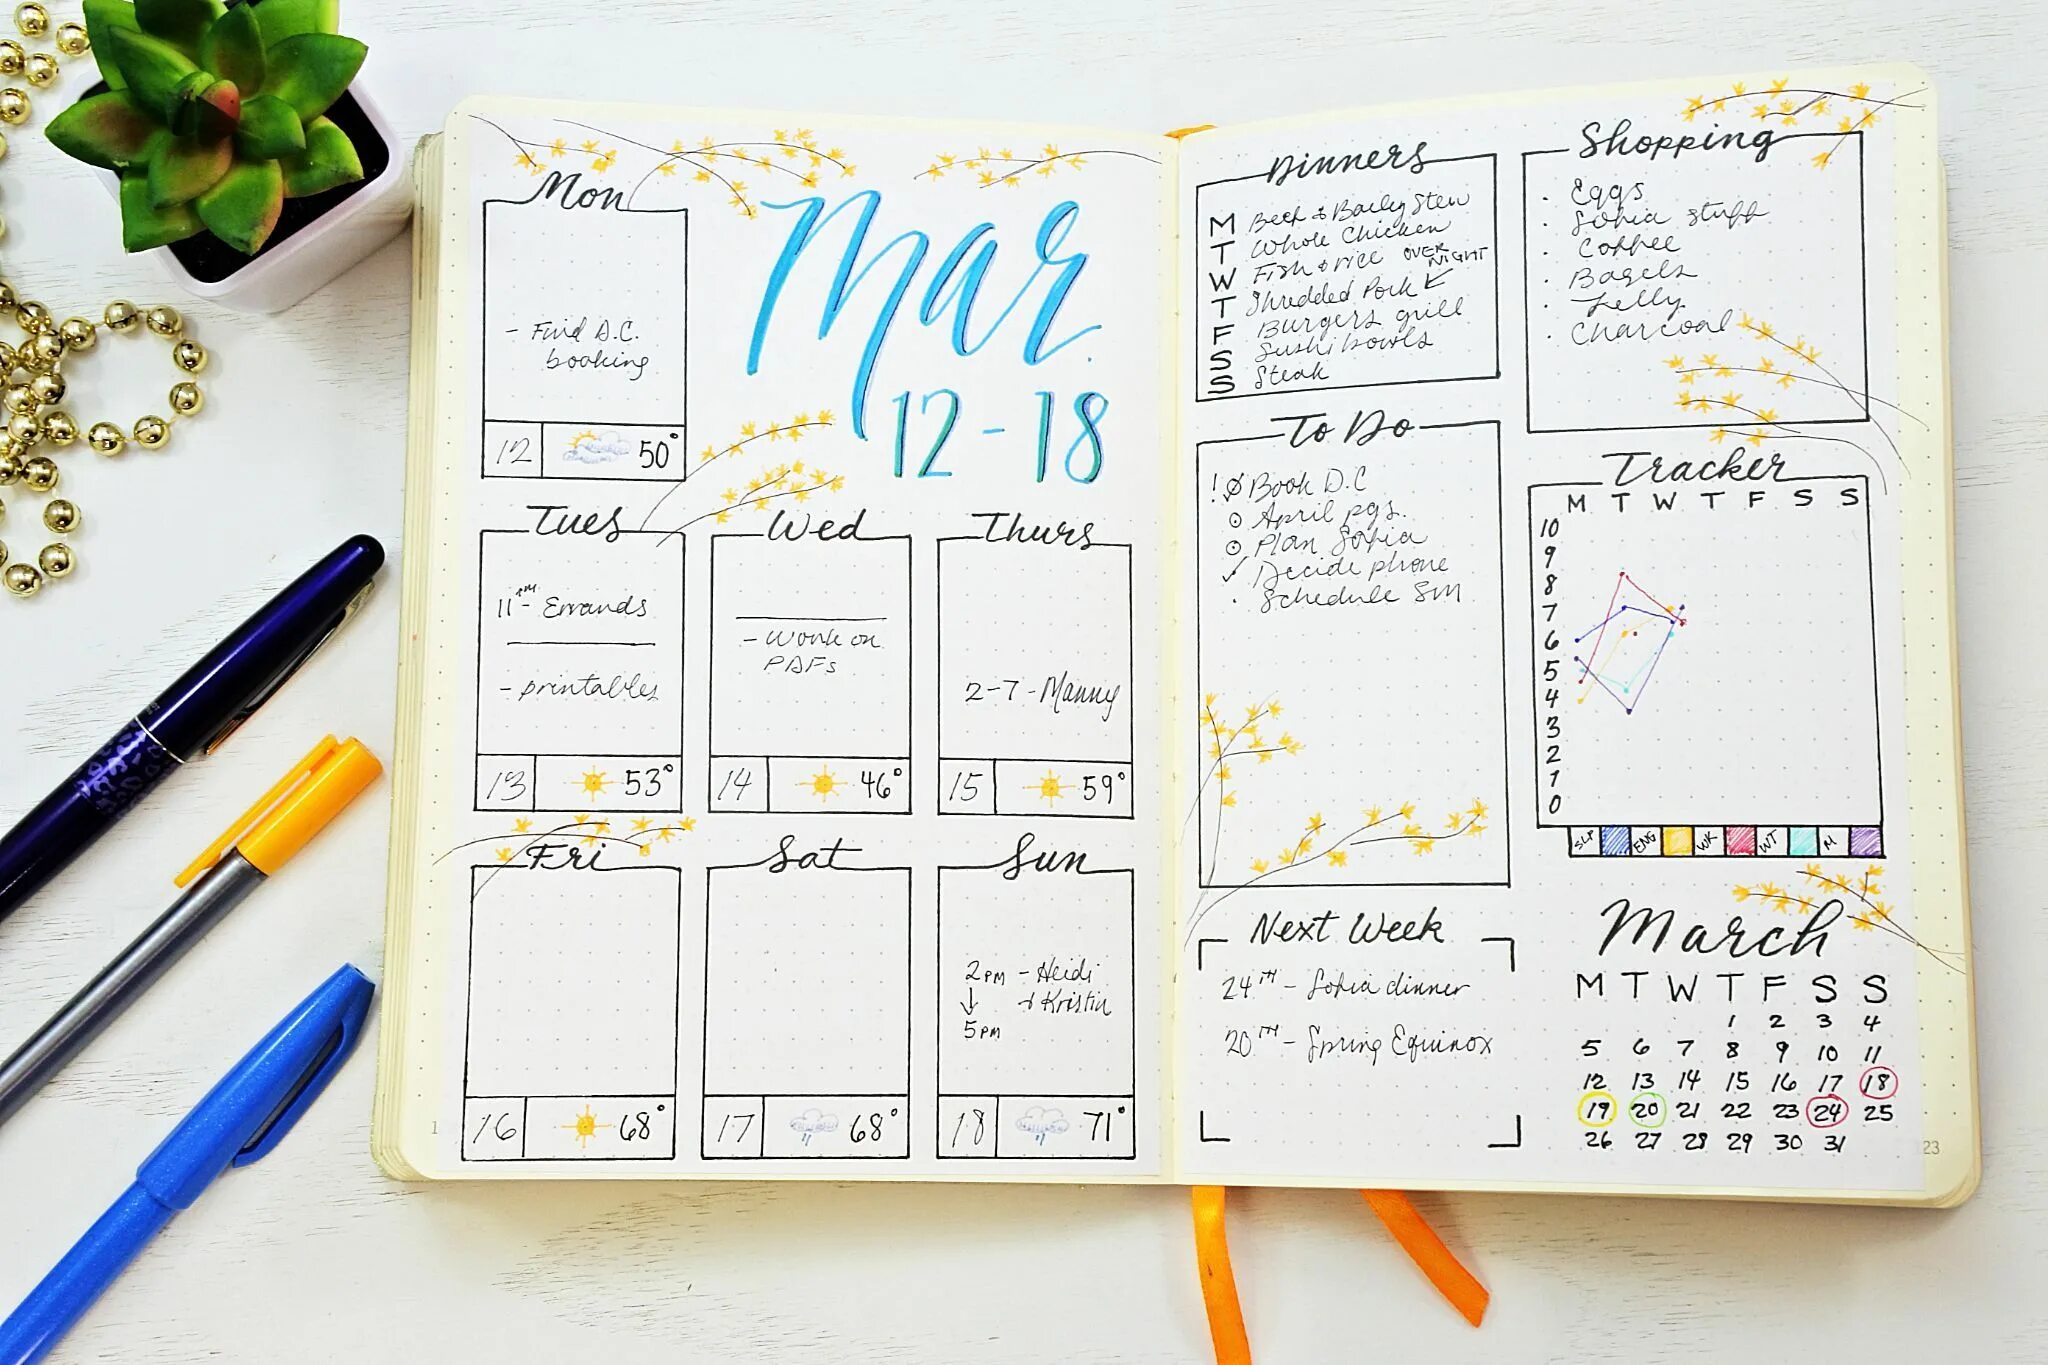 Mon
- Find D.C.
booking
12 50°
Mar.
12-18
Tues
11AM- Errands
- printables
13 53°
Wed
- Work on
PDFs
14 46°
Thurs
2-7-Manny
15 59°
Fri
16 68°
Sat
17 68°
Sun
2PM - Heidi
↓ + Kristin
5PM
18 71°
Dinners
M Beef & Barley Stew
T Whole Chicken
W Fish & rice OVER
NIGHT
T Shredded Pork
F Burgers grill
S Sushi bowls
S Steak
Shopping
· Eggs
· Sofia stuff
· Coffee
· Bagels
· Jelly
· Charcoal
To Do
! Book D.C
April pgs.
Plan Sofia
✓ Decide phone
· Schedule SM
Tracker
M T W T F S S
10
9
8
7
6
5
4
3
2
1
0
SLP ENG WK WT M
Next Week
24TH - Sofia dinner
20TH - Spring Equinox
March
M T W T F S S
1 2 3 4
5 6 7 8 9 10 11
12 13 14 15 16 17 18
19 20 21 22 23 24 25
26 27 28 29 30 31
23